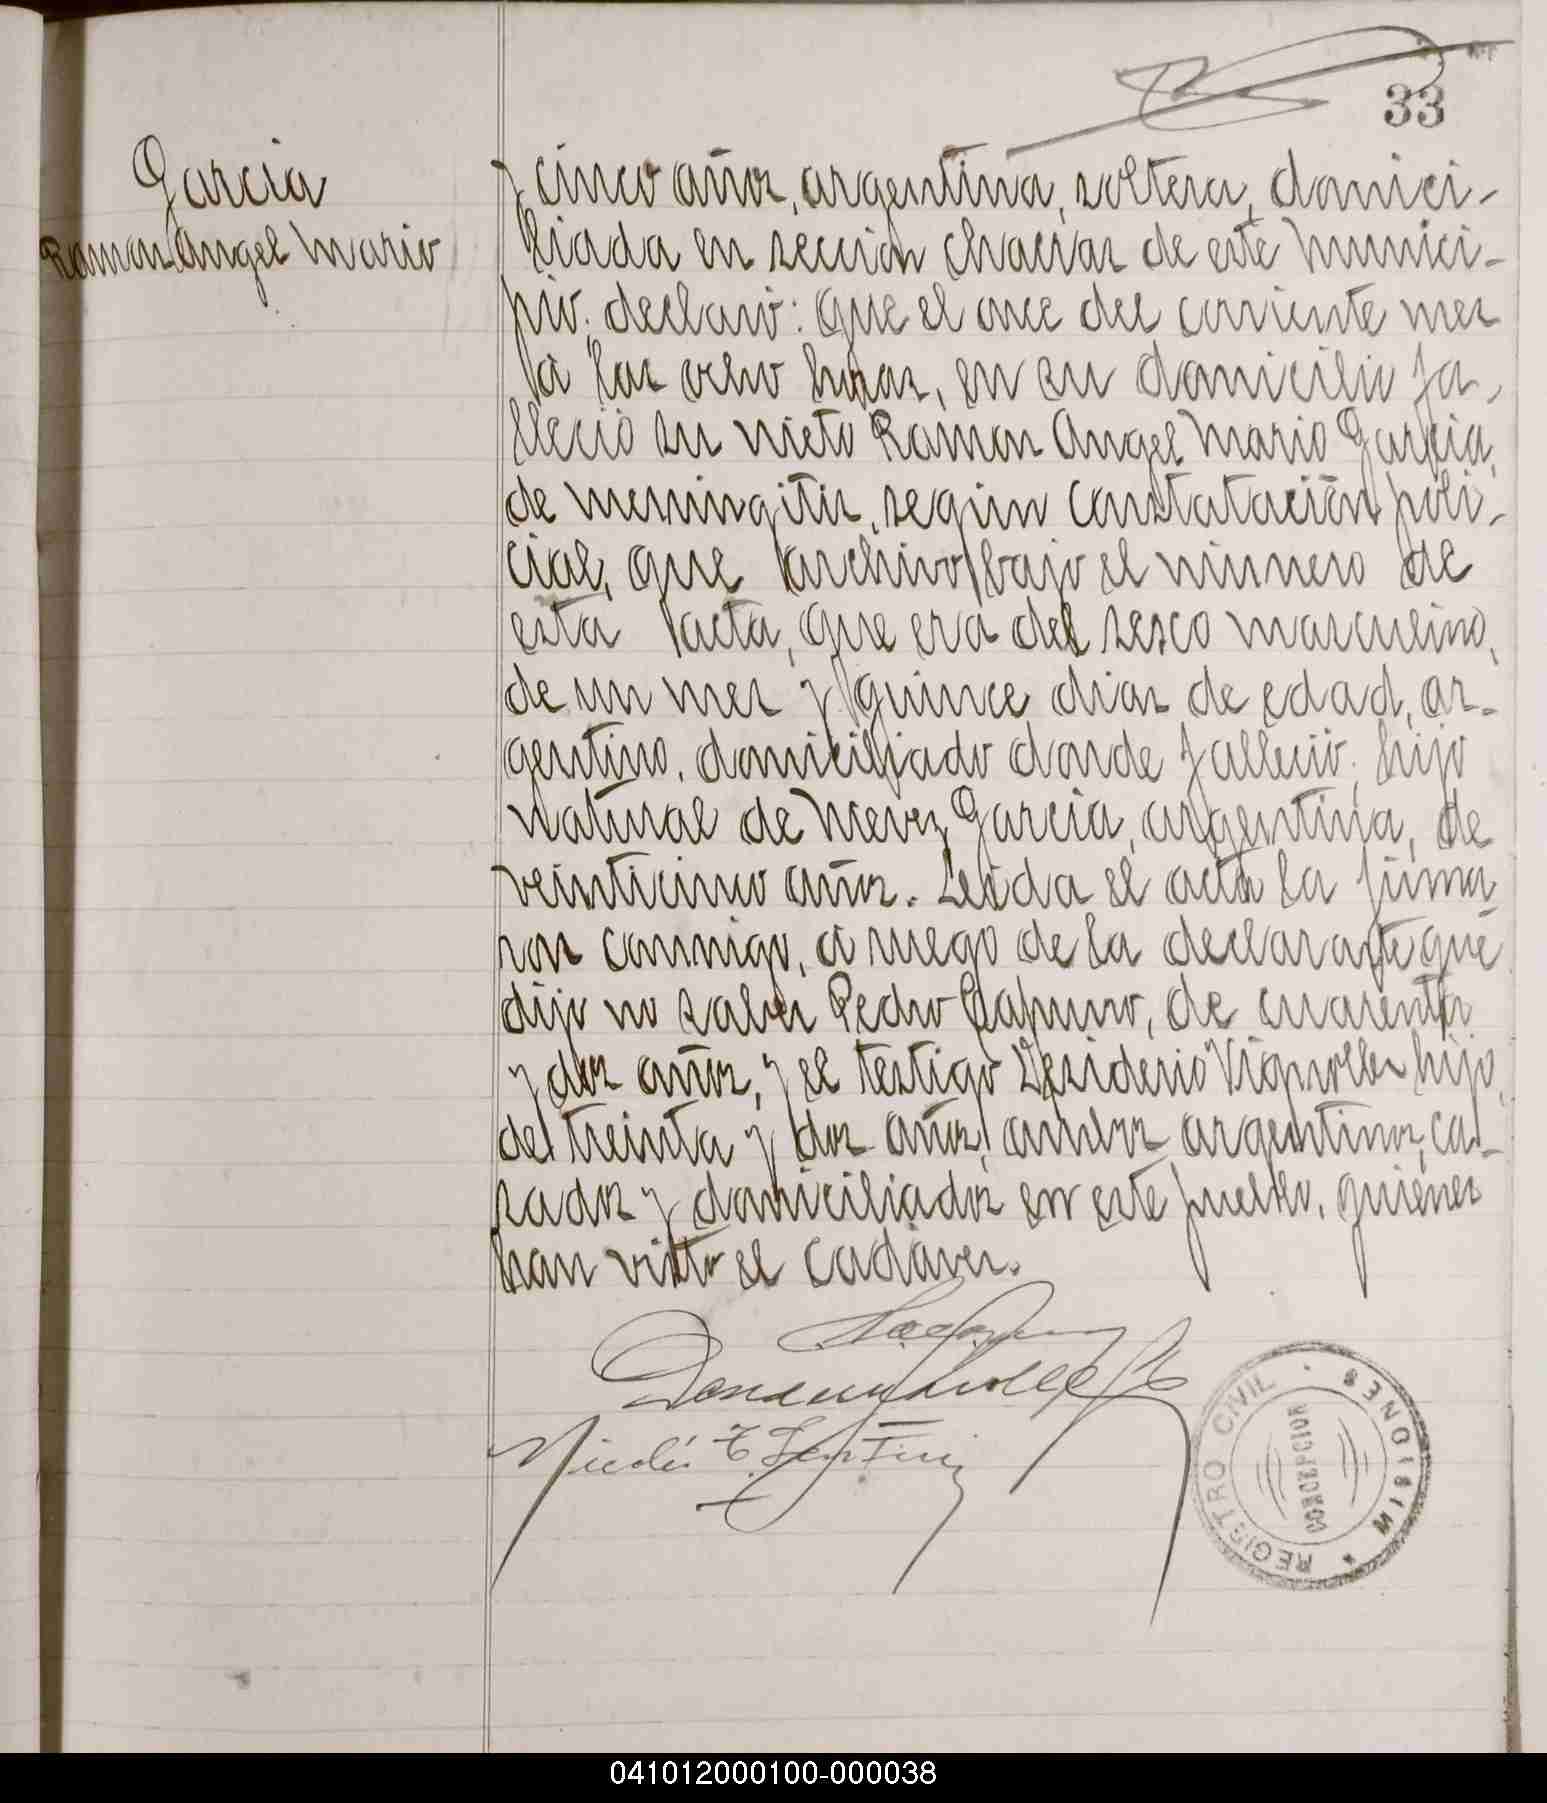 33
Garcia
Ramon Angel Mario
y cinco años, argentina, soltera, domici-
liada en sección chacras de este munici-
pio; declaró: Que el once del corriente mes
a las ocho horas, en su domicilio fa-
lleció su nieto Ramon Angel Mario Garcia,
de meningitis, según constatación poli-
cial, que archivo bajo el número de
esta acta, que era del sexo masculino,
de un mes y quince dias de edad, ar-
gentino, domiciliado donde falleció; hijo
natural de Nieves Garcia, argentina, de
veinticinco años. Leida el acta la firma
ron conmigo, a ruego de la declarante que
dijo no saber Pedro, de cuarenta
y dos años, y el testigo Desiderio Vignolles hijo,
de treinta y dos años, ambos argentinos, ca-
sados y domiciliados en este pueblo, quienes
han visto el cadáver.
REGISTRO CIVIL
MISIONES
CONCEPCION
041012000100-000038